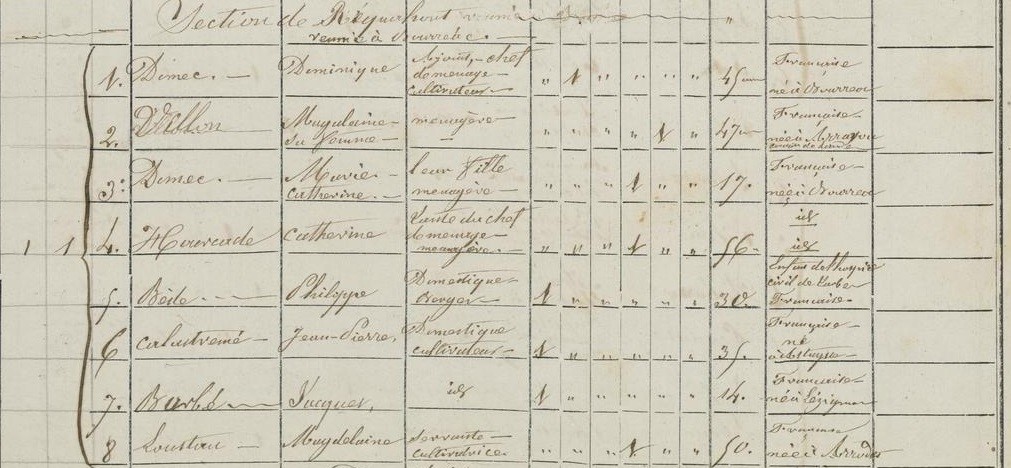 Section de
réunie à Bourréac. "
1. Dimec. Dominique Adjoint, chef de menage cultivateur " 1 " " " " 45 ans Française né à Bourréac
2. Magdelaine menagère " " " " 1 " 47 ans Française née à
3. Dimec. Marie Catherine. leur fille menagère " " " 1 " " 17. Française née à Bourréac
1 1 4. Hourcade Catherine Tante du chef de menage menagère. " " " 1 " " 56. id id
5. Bède Philippe Domestique Berger 1 " " " " " 30. Enfant de l'hospice civil de Tarbes Française
6 Calastremé Jean-Pierre, Domestique cultivateur 1 " " " " " 35. Française né à
7. Barbé Jacques, id 1 " " " " " 14. Française né à Lézignan
8 Loustau Magdelaine servante cultivatrice " " " 1 " " 50. Française née à